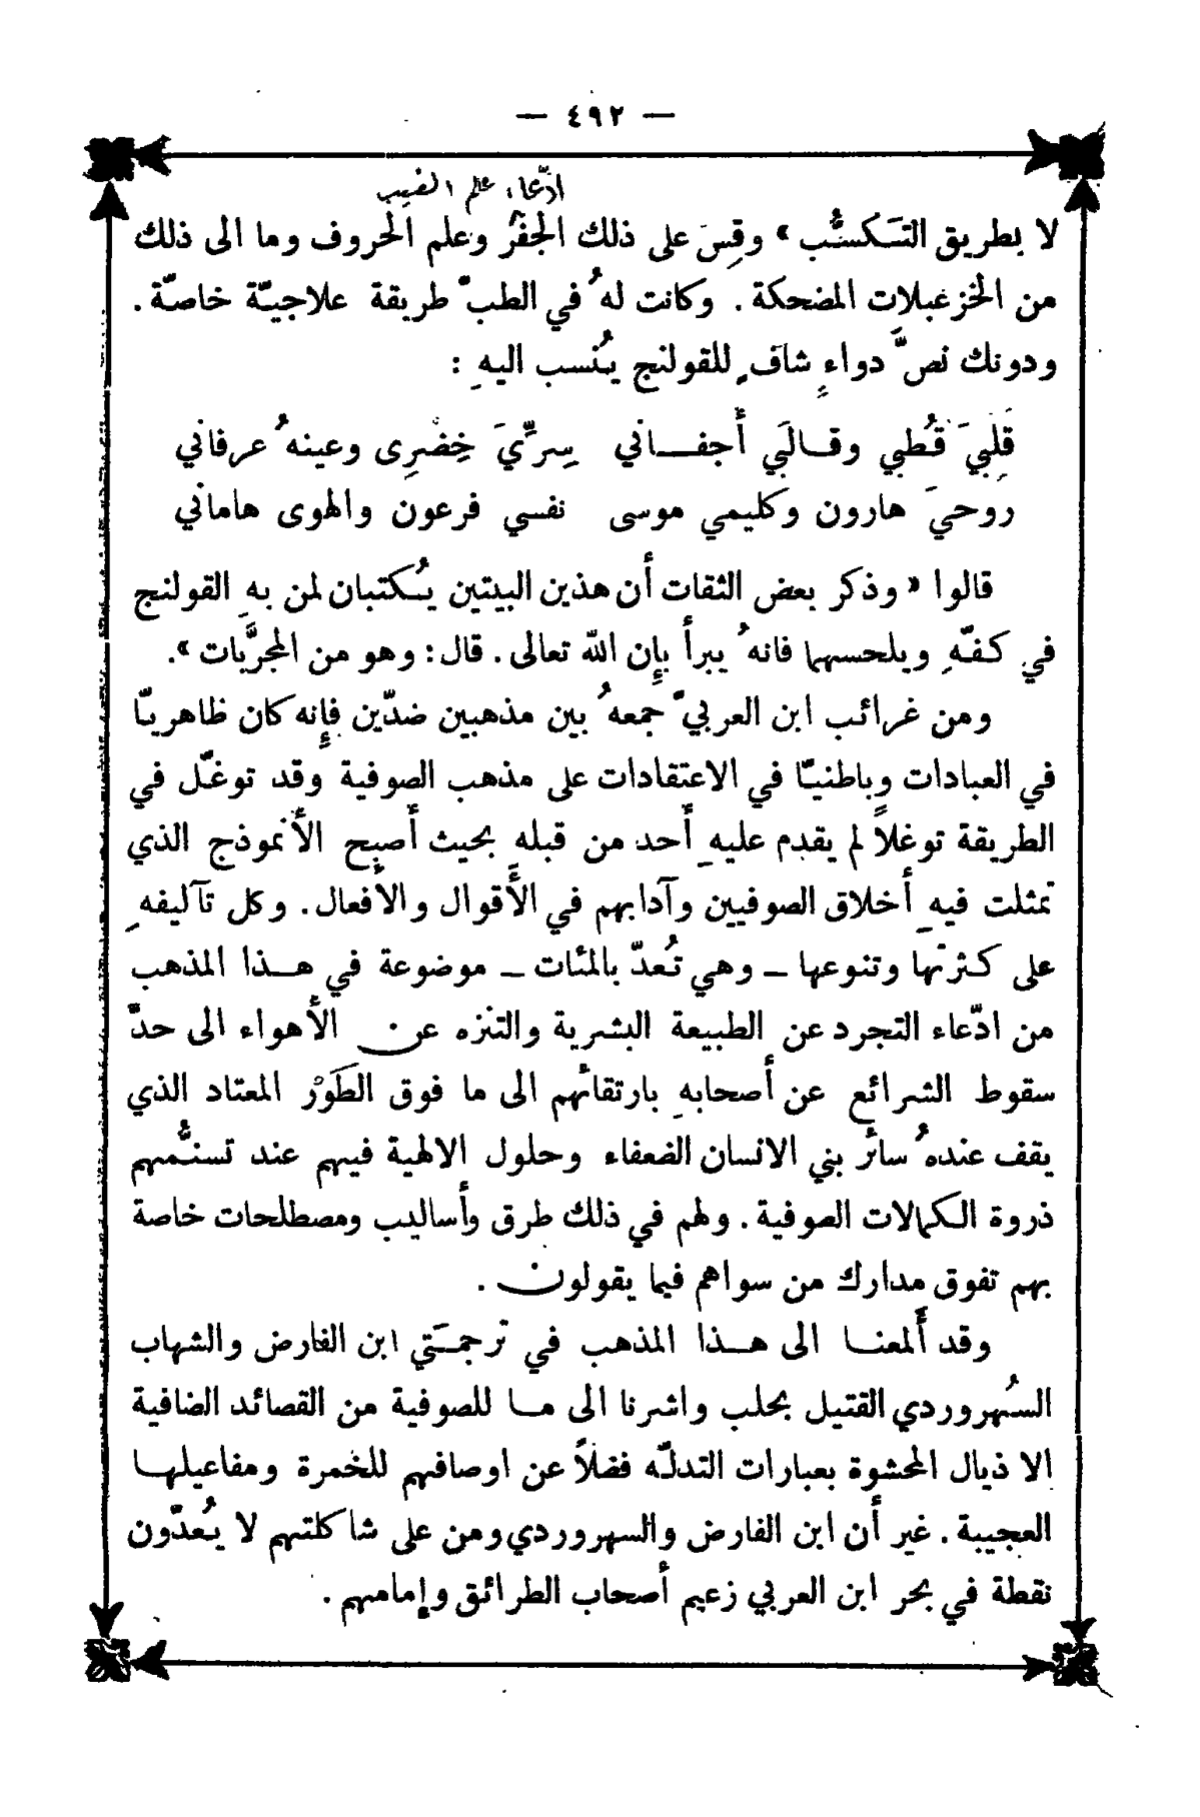 — ٤٩٢ —
ادّعاء علم الغيب
لا بطريق التَكسُّب » وقِسَ على ذلك الجَفْرُ وعلم الحروف وما الى ذلك
من الخزعبلات المضحكة . وكانت لهُ في الطبّ طريقة علاجيّة خاصّة .
ودونك نصَّ دواءٍ شافٍ للقولنج يُنسب اليهِ :
قلبِيَ قُطبي وقالَبي أَجفاني سِرِّيَ خِضْرِى وعينهُ عرفاني
روحيَ هارون وكليمي موسى نفسي فرعون والهوى هاماني
قالوا « وذكر بعض الثقات أن هذين البيتين يُكتبان لمن بهِ القولنج
في كفّهِ ويلحسهما فانهُ يبرأ بإِن الله تعالى . قال : وهو من المجرَّبات ».
ومن غرائب ابن العربيّ جمعهُ بين مذهبين ضدّين فإِنه كان ظاهريّا
في العبادات وباطنيّا في الاعتقادات على مذهب الصوفية وقد توغّل في
الطريقة توغلاً لم يقدم عليهِ أَحد من قبلهِ بحيث أَصبح الأَنموذج الذي
تمثلت فيهِ أَخلاق الصوفيين وآدابهم في الأَقوال والأَفعال . وكل تآليفهِ
على كثرتها وتنوعها – وهي تُعدّ بالمئات – موضوعة في هذا المذهب
من ادّعاء التجرد عن الطبيعة البشرية والتنزه عن الأَهواء الى حدّ
سقوط الشرائع عن أَصحابهِ بارتقائهم الى ما فوق الطَوْر المعتاد الذي
يقف عندهُ سائر بني الانسان الضعفاء وحلول الالهية فيهم عند تسنُّمهم
ذروة الكمالات الصوفية . ولهم في ذلك طرق وأَساليب ومصطلحات خاصة
بهم تفوق مدارك من سواهم فيما يقولون .
وقد أَلمعنا الى هذا المذهب في ترجمَتي ابن الفارض والشهاب
السُهروردي القتيل بحلب واشرنا الى ما للصوفية من القصائد الضافية
الاذيال المحشوة بعبارات التدلّه فضلاً عن اوصافهم للخمرة ومفاعيلها
العجيبة . غير أَن ابن الفارض والسهروردي ومن على شاكلتهم لا يُعدّون
نقطة في بحر ابن العربي زعيم أَصحاب الطرائق وإمامهم .